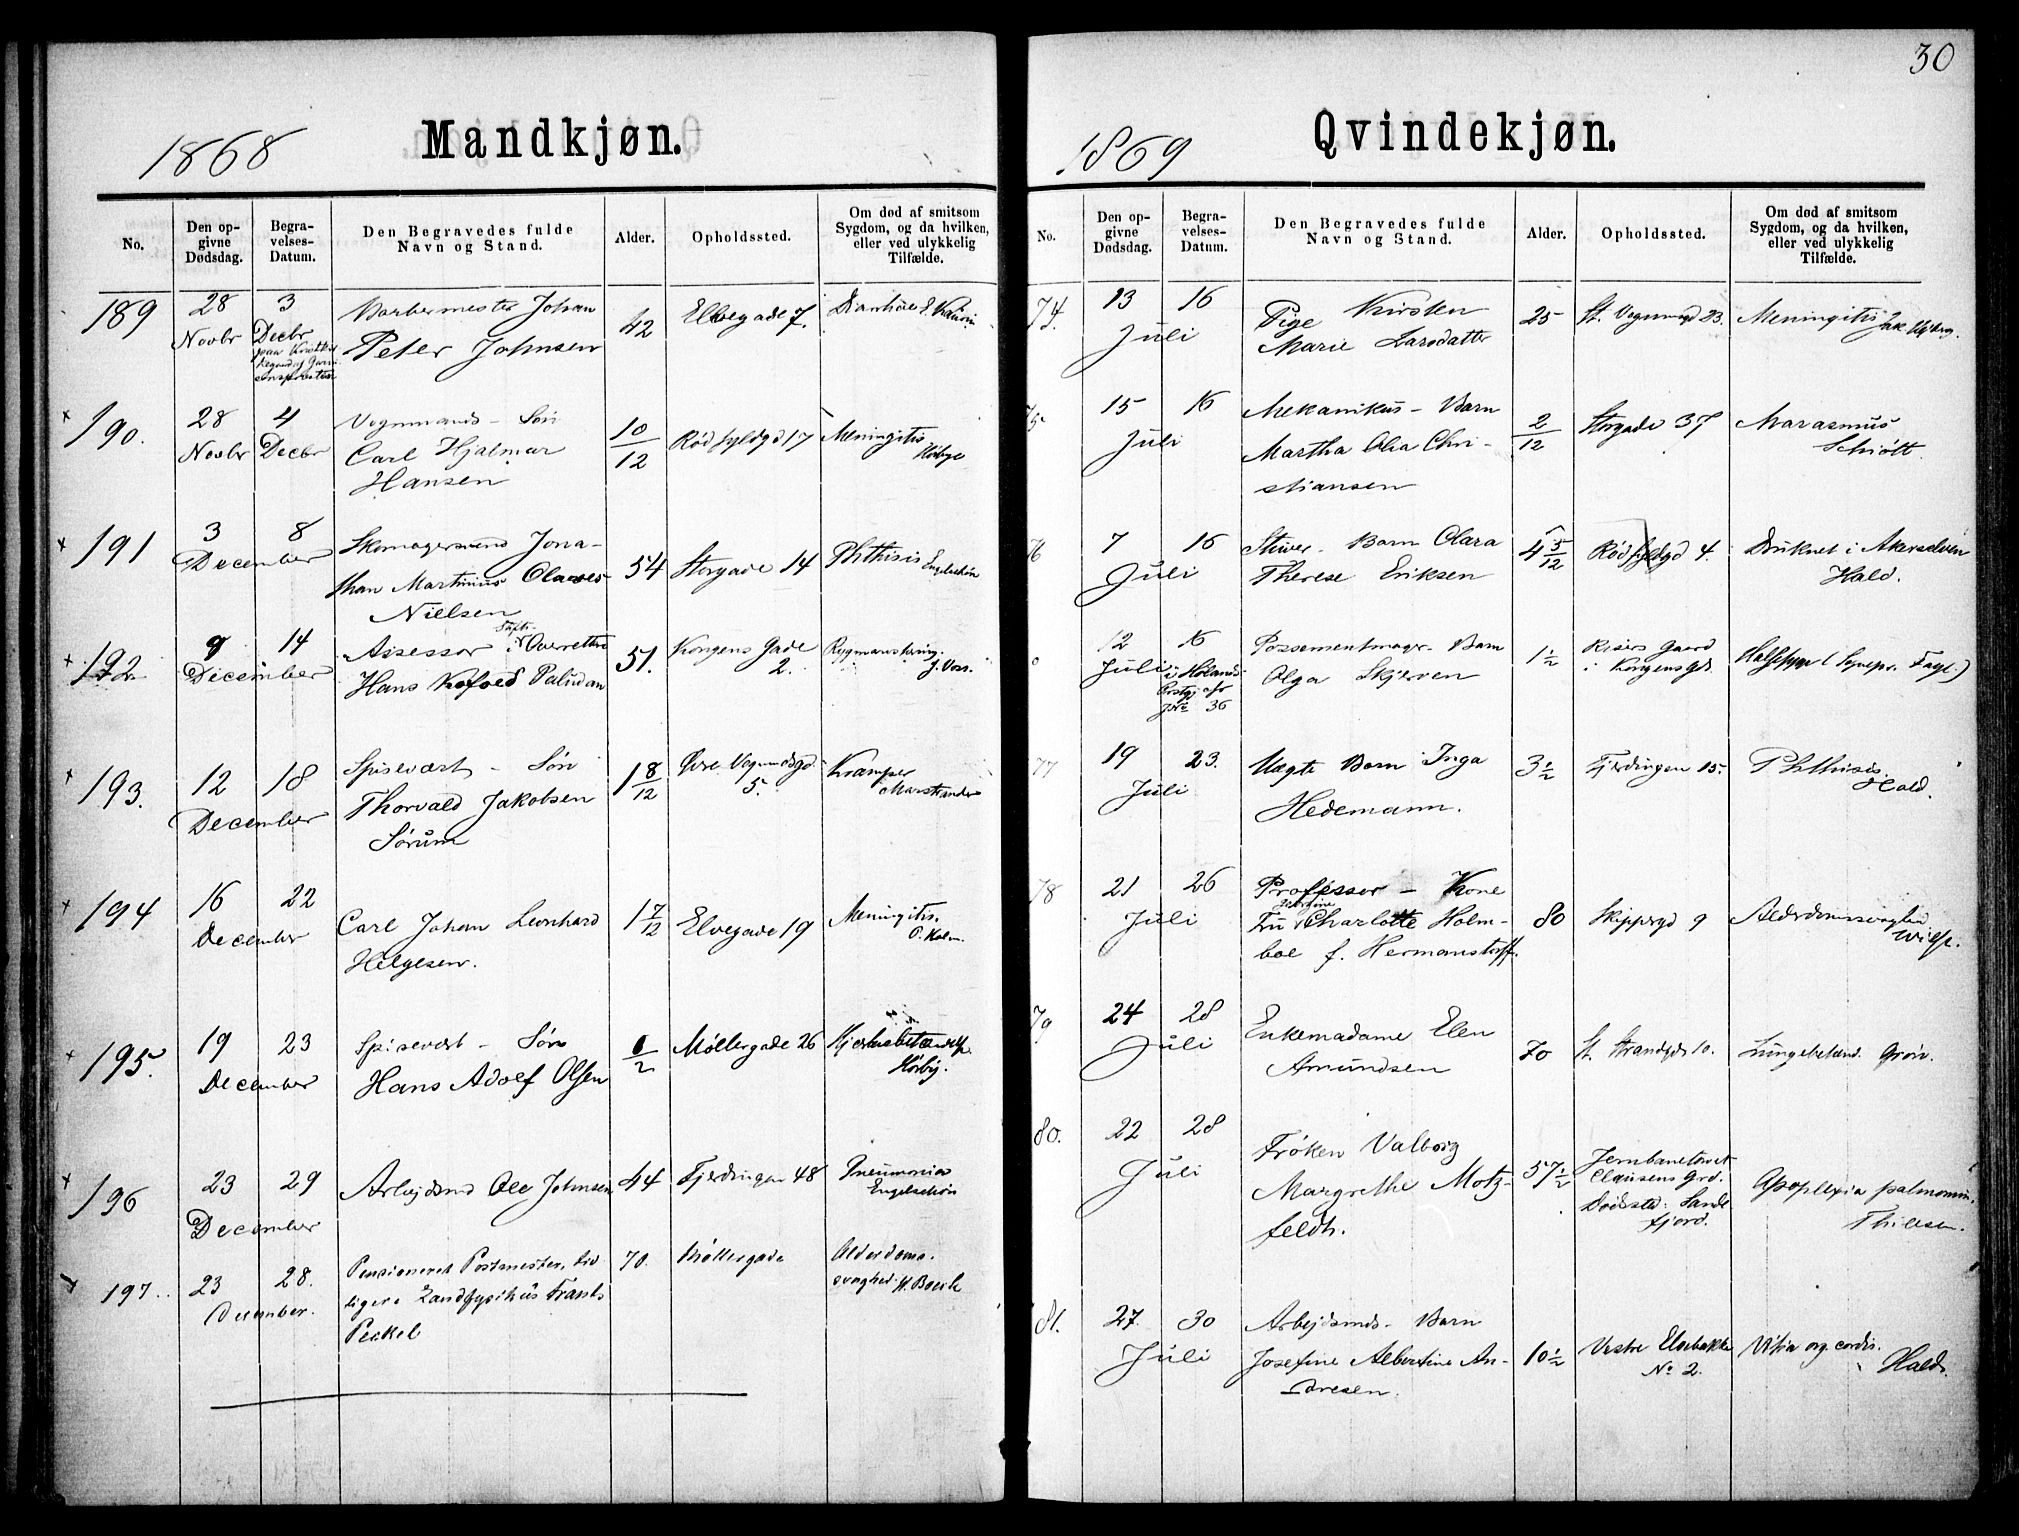 1868
Mandkjøn.
No.
Den op-
givne
Dødsdag.
Begra-
velses-
Datum.
Den Begravedes fulde
Navn og Stand.
Alder.
Opholdssted.
Om død af smitsom
Sygdom, og da hvilken,
eller ved ulykkelig
Tilfælde.
189
28
Novbr
3
Decbr
paa
Barbermester Johan
Peter Johnsen
42
Elvegade 7.
Diarrhøe E Kaurin
190.
28
Novbr
4
Decbr
Vognmands - Søn
Carl Hjalmar
Hansen
10/12
Rødfyldgd 17
Meningitis
191
3
8
December
Skomagersvend Jona-
than Martinius Olaves
Nielsen
54
Storgade 14
Phthisis
Engelschøn
192
9
14
December
Assessor i Stifts-Overretten
Hans Kofoed Paludan
51.
Kongens Gade
2.
Rygmarvstæring.
J. Voss.
193.
12
18
December
Spisevært - Søn
Thorvald Jakobsen
Sørum
1 8/12
Øvre Vognmdsgd
5.
Kramper
Marstrander
194
16
22
December
Carl Johan Leonhard
Helgesen.
1 7/12
Elvegade 19
Meningitis.
P. Holm.
195.
19
23
December
Spisevært - Søn
Hans Adolf Olsen
1/2
Møllergade 26
Hjernebetændelse
Hørby.
196
23
29
December
Arbejdsmd Ole Johnsen
44
Fjerdingen 48
Pneumonia
Engelschøn
197.
23
28.
December.
Pensioneret Postmester, tid-
ligere Landfysikus Frants
Peckel
70.
Møllergade
Alderdoms.
svaghed. H. Boeck
30
1869
Qvindekjøn.
No.
Den op-
givne
Dødsdag.
Begra-
velses-
Datum.
Den Begravedes fulde
Navn og Stand.
Alder.
Opholdssted.
Om død af smitsom
Sygdom, og da hvilken,
eller ved ulykkelig
Tilfælde.
74.
13
16
Juli
Pige Kirsten
Marie Larsdatter
25
St. Vognmgd 23.
Meningitis
75
15
16
Juli
Mekanikus - Barn
Martha Olia Chri-
stiansen
2/12
Storgade 37
Marasmus
Schiøtt.
76
7
16
Juli
Stuver - Barn Clara
Therese Eriksen
4 5/12
Rødfyldgd 4.
Druknet i Akerselven
Hald.
12
16
Juli
i Hølands
Prstgj. afr
Jrn 36
Possementmager - Barn
Olga Skjerven
1 1/2
Risers Gaard
i Kongensgd.
Halssyge (
77
19
23.
Juli
Uægte Barn Inga
Hedemann.
3 1/2
Fjerdingen 15.
Phthisis.
Hald.
78
21
26
Juli
Professor - Kone
Fru Charlotte Holm-
boe f. Hermanstorff.
80
Skippergd 9
Alderdomssvaghed
79
24
28
Juli
Enkemadame Elen
Amundsen
70
St. Strandgd 10.
Lungebetænd. Grøn.
80.
22
28
Juli
Frøken Valborg
Margrethe Motz-
feldt.
57 1/2
Jernbanetorvet
Clausens Grd.
Dødssted: Sande-
fjord.
Apoplexia pulmonum.
Thilesen.
81.
27.
30
Juli
Arbejdsmds - Barn
Josefine Albertine An-
dresen.
10 1/2
Vestre Elvebakke
No 2.
Vitia org. cordis.
Hald.